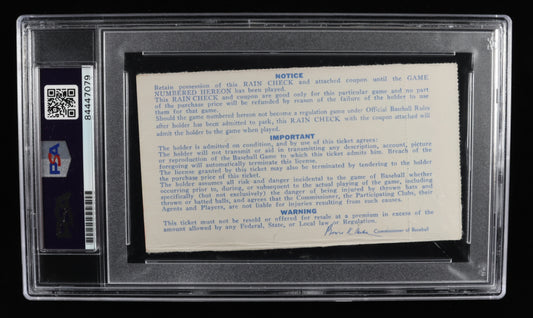 NOTICE
Retain possession of this RAIN CHECK and attached coupon until the GAME
NUMBERED HEREON has been played.
This RAIN CHECK and coupon are good only for this particular game and no part
of the purchase price will be refunded by reason of the failure of the holder to use
them for that game.
Should the game numbered hereon not become a regulation game under Official Baseball Rules
after holder has been admitted to park, this RAIN CHECK with the coupon attached will
admit the holder to the game when played.
IMPORTANT
The holder is admitted on condition, and by use of this ticket agrees:
The holder will not transmit or aid in transmitting any description, account, picture
or reproduction of the Baseball Game to which this ticket admits him. Breach of the
foregoing will automatically terminate this license.
The license granted by this ticket may also be terminated by tendering to the holder
the purchase price of this ticket.
The holder assumes all risk and danger incidental to the game of Baseball whether
occurring prior to, during, or subsequent to the actual playing of the game, including
specifically (but not exclusively) the danger of being injured by thrown bats and
thrown or batted balls, and agrees that the Commissioner, the Participating Clubs, their
Agents and Players, are not liable for injuries resulting from such causes.
WARNING
This ticket must not be resold or offered for resale at a premium in excess of the
amount allowed by any Federal, State, or Local law or Regulation.
Bowie K. Kuhn Commissioner of Baseball
84447079
PSA